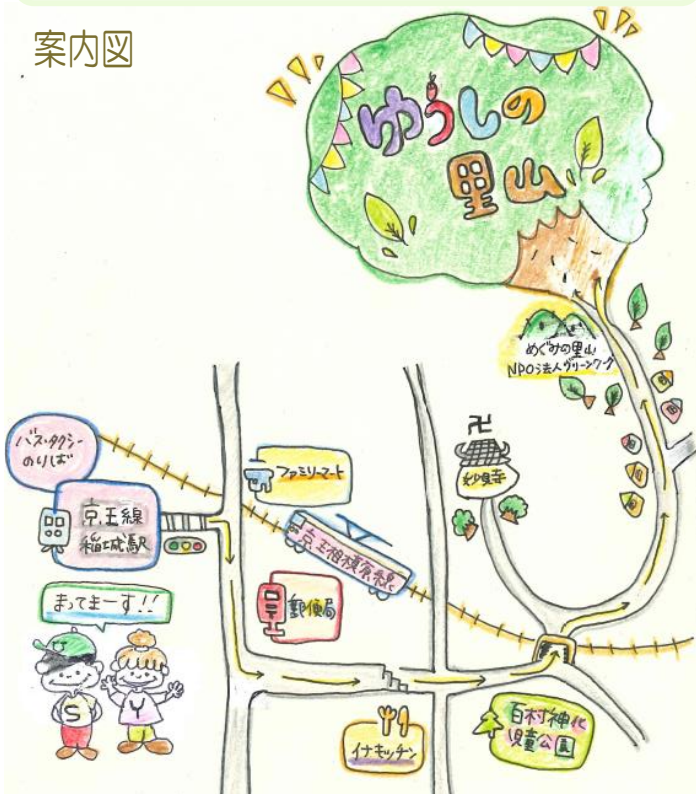 案内図
ゆうしの
里山
めぐみの里山
NPO法人グリーンワーク
バス・タクシー
のりば
京王線
稲城駅
ファミリーマート
卍
妙見寺
京王相模原線
まってまーす!!
郵便局
S
Y
イナキッチン
百村神化
児童公園